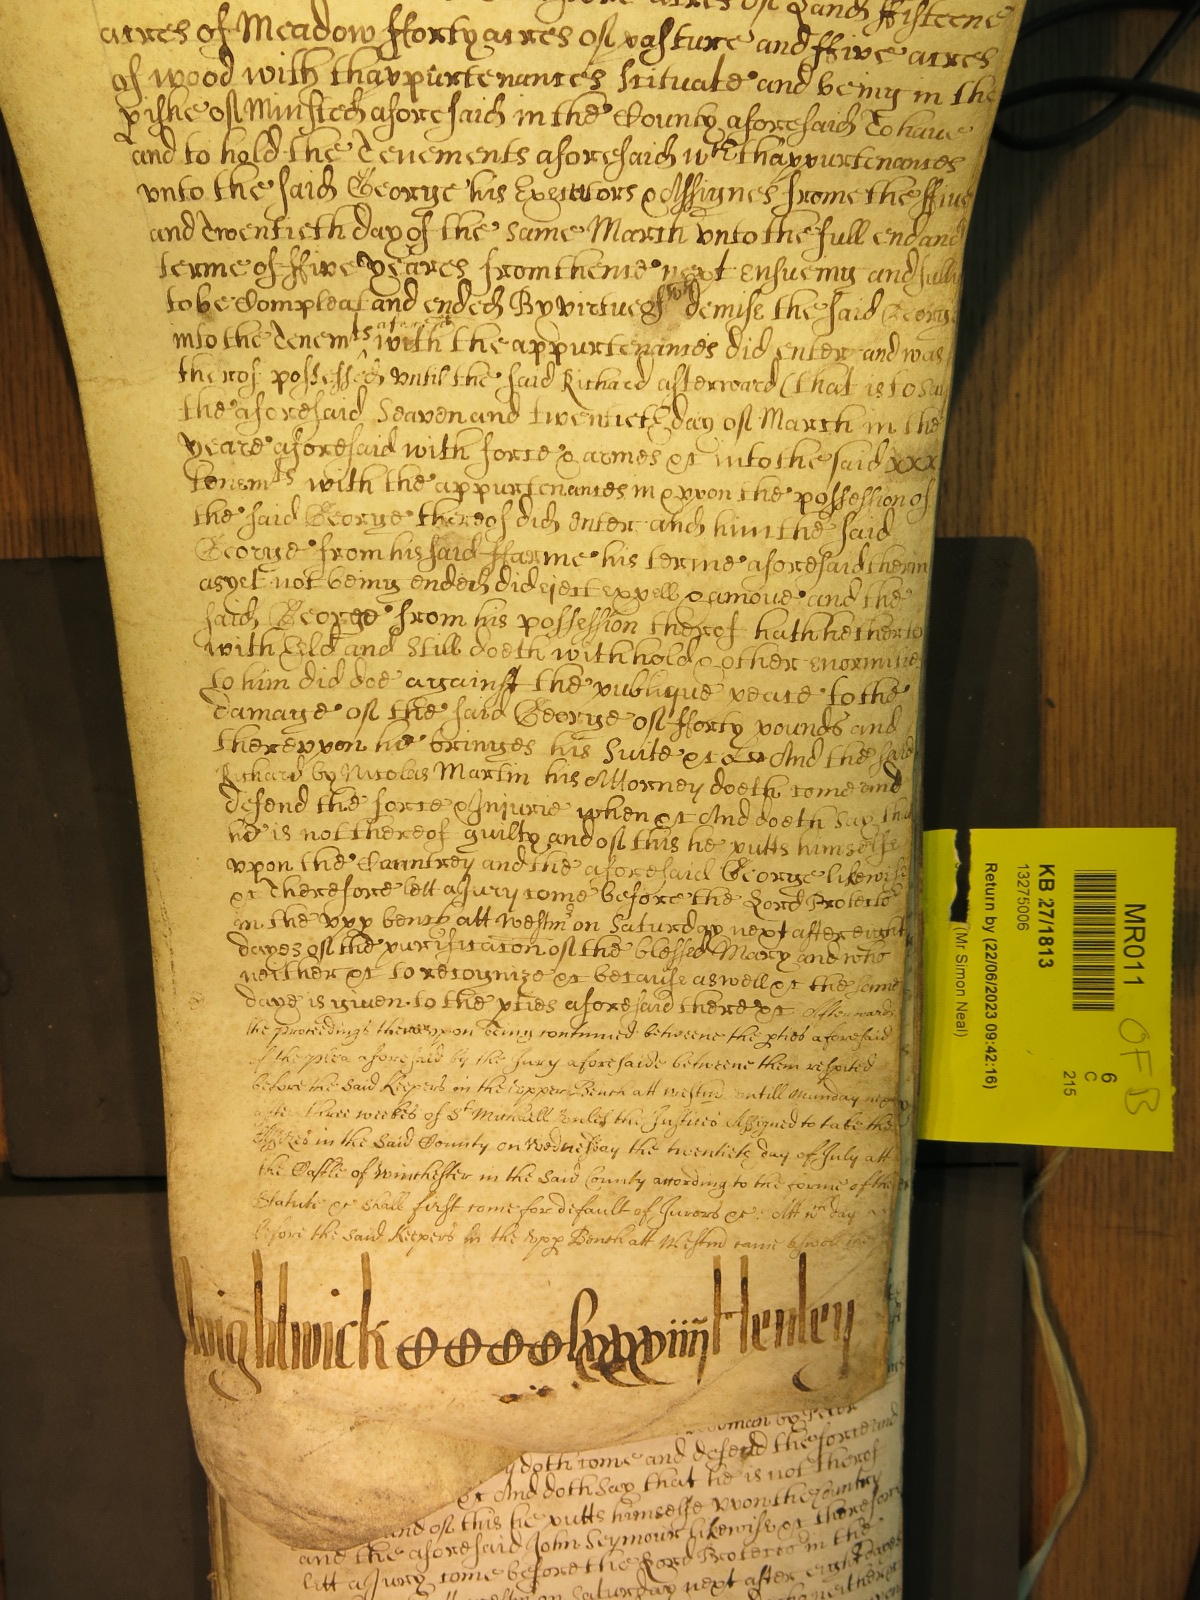 acres of Land ffifteene
acres of Meadow fforty acres of pasture and ffive acres
of wood with thappurtenances Scituate and being in the
pishe of Minsted aforesaid in the County aforesaid To have
and to hold the Tenements aforesaid wth thappurtenances
vnto the said George his Executors & Assignes frome the ffive
and Twentieth day of the same March vnto the full end and
terme of ffive yeares from thence next ensueing and fully
to be Compleat and ended By virtue of wch demise the said George
into the Tenemts aforesd with the appurtenances did enter and was
therof possessed vntill the said Richard afterward (that is to say
the aforesaid Seaven and twentieth day of March in the
yeare aforesaid with force & armes &c into the said xxx
tenemts with the appurtenances in & vpon the possession of
the said George thereof did enter and him the said
George from his said ffarme his terme aforesaid therin
as yet not being ended did eject expell & amove and the
said George from his possession therof hath hetherto
with Eld and Still doeth withhold & other enormities
to him did doe against the publique peace to the
damage of the said George of fforty pounds and
therevpon he bringes his Suite &c And the said
Richard by Nicolas Martin his Attorney doeth come and
defend the force & Injurie when &c And doeth Say that
he is not thereof guilty and of this he putts himselfe
vpon the Countrey and the aforesaid George likewise
&c Therefore lett a Jury come before the Lord Protector
in the vpp bench att Westmr on Saturday next after eight
dayes of the purificacon of the blessed Mary and who
neither &c to recognize &c because aswell &c the same
daye is given to the pties aforesaid there &c Afterwards
the proceedings therevpon being continued betweene the pties aforesaid
of the plea aforesaid by the Jury aforesaide betweene them respited
before the said Keepers in the vpper Bench att Westmr vntill Munday next
after three weekes of St Michaell vnles the Justices Assigned to take the
Assizes in the said County on Wednesday the twentieth day of July att
the Castle of Winchester in the said County according to the forme of the
Statute &c shall first come for default of Jurors &c Att wch day
before the said Keepers in the vpp Bench att Westmr came aswell the
Wightwick CCCClxxxviiij Henley
yeoman by Peter
doth come and defend the force and
&c And doth Say that he is not therof
and of this he putts himselfe vpon the Country
and the aforesaid John Seymour likewise &c therefore
lett a Jury come before the Lord Protector in the
on Saturday next after eight dayes
MR011
6
C
215
OFB
KB 27/1813
13275006
Return by (22/06/2023 09:42:16)
(Mr Simon Neal)